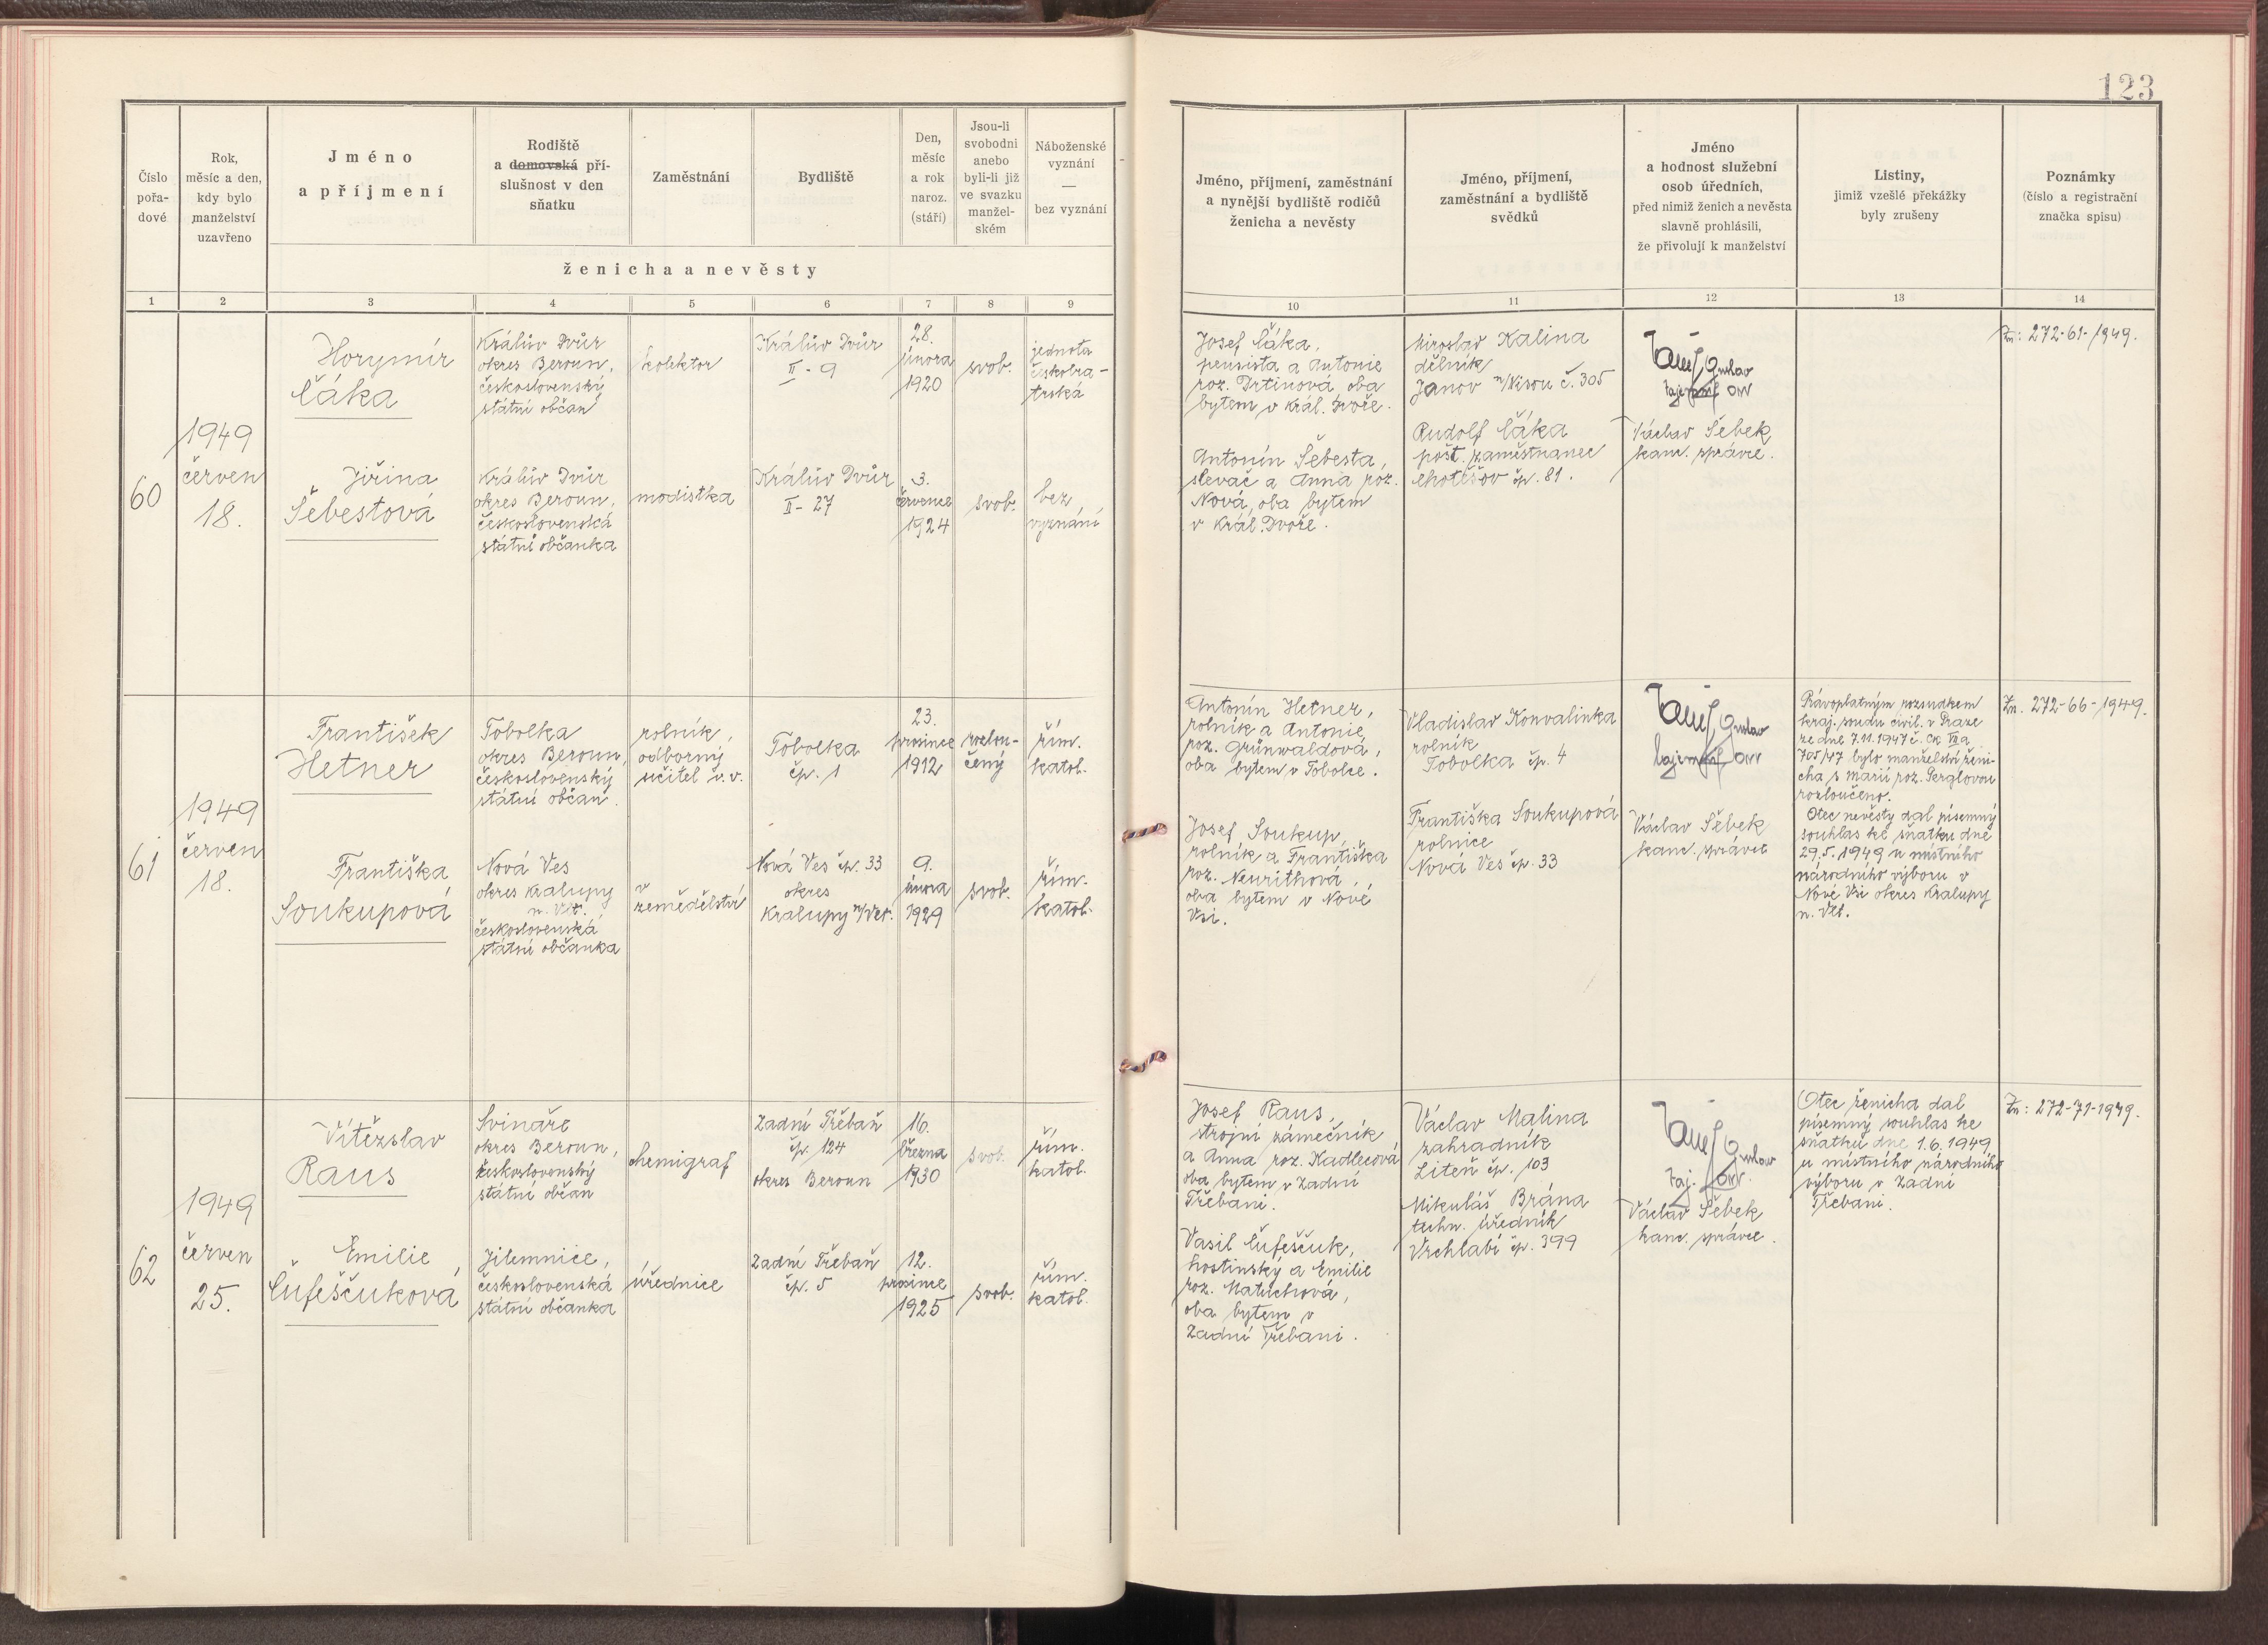 123
Číslo
pořa-
dové
Rok,
měsíc a den,
kdy bylo
manželství
uzavřeno
Jméno
a příjmení
Rodiště
a domovská pří-
slušnost v den
sňatku
Zaměstnání
Bydliště
Den,
měsíc
a rok
naroz.
(stáří)
Jsou-li
svobodni
anebo
byli-li již
ve svazku
manžel-
ském
Náboženské
vyznání
—
bez vyznání
ženicha a nevěsty
Jméno, příjmení, zaměstnání
a nynější bydliště rodičů
ženicha a nevěsty
Jméno, příjmení,
zaměstnání a bydliště
svědků
Jméno
a hodnost služební
osob úředních,
před nimiž ženich a nevěsta
slavně prohlásili,
že přivolují k manželství
Listiny,
jimiž vzešlé překážky
byly zrušeny
Poznámky
(číslo a registrační
značka spisu)
1 2 3 4 5 6 7 8 9 10 11 12 13 14
60
1949
červen
18.
Horymír
Čáka
Králův Dvůr
okres Beroun,
československý
státní občan
kolektor
Králův Dvůr
II - 9
28.
února
1920
svob.
jednota
českobra-
trská
Jiřina
Šebestová
Králův Dvůr
okres Beroun,
československá
státní občanka
modistka
Králův Dvůr
II - 27
3.
července
1924
svob.
bez
vyznání
Josef Čáka,
pensista a Antonie
roz. Drtinová oba
bytem v Král. Dvoře.
Antonín Šebesta,
slevač a Anna roz.
Nová, oba bytem
v Král. Dvoře.
Miroslav Kalina
dělník
Janov n/Nisou č. 305
Rudolf Čáka
pošt. zaměstnanec
Chotěšov čp. 81.
Václav Šebek
kanc. správce.
Zn: 272-61-1949.
61
1949
červen
18.
František
Hetner
Tobolka
okres Beroun,
československý
státní občan.
rolník,
odborný
učitel v. v.
Tobolka
čp. 1
23.
prosince
1912
rozlou-
čený
řím.
katol.
Františka
Soukupová
Nová Ves
okres Kralupy
n. Vlt.
československá
státní občanka
v
zemědělství
Nová Ves čp. 33
okres
Kralupy n/Vlt.
9.
února
1929
svob.
řím.
katol.
Antonín Hetner,
rolník a Antonie
roz. Grünwaldová,
oba bytem v Tobolce.
Josef Soukup,
rolník a Františka
roz. Neurithová,
oba bytem v Nové
Vsi.
Vladislav Konvalinka
rolník
Tobolka čp. 4
Františka Soukupová
rolnice
Nová Ves čp. 33
Václav Šebek
kanc. správce
Právoplatným rozsudkem
kraj. soudu civil. v Praze
ze dne 7.11.1947 č. Ck VII a
705/47 bylo manželství ženi-
cha s Marií roz. Perglovou
rozloučeno.
Otec nevěsty dal písemný
souhlas ke sňatku dne
29.5.1949 u místního
národního výboru v
Nové Vsi okres Kralupy
n. Vlt.
Zn. 272-66-1949.
62
1949
červen
25.
Vítězslav
Raus
Svináře
okres Beroun,
československý
státní občan
chemigraf
Zadní Třebaň
čp. 124
okres Beroun
16.
března
1930
svob.
řím.
katol.
Emilie
Čufeščuková
Jilemnice,
československá
státní občanka
úřednice
Zadní Třebaň
čp. 5
12.
prosince
1925
svob.
řím.
katol.
Josef Raus,
strojní zámečník
a Anna roz. Kadlecová
oba bytem v Zadní
Třebani.
Vasil Čufeščuk,
hostinský a Emilie
roz. Matuchová,
oba bytem v
Zadní Třebani.
Václav Malina
zahradník
Liteň čp. 103
Mikuláš Brána
techn. úředník
Vrchlabí čp. 399
Václav Šebek
kanc. správce.
Otec ženicha dal
písemný souhlas ke
sňatku dne 1.6.1949
u místního národního
výboru v Zadní
Třebani.
Zn: 272-71-1949.